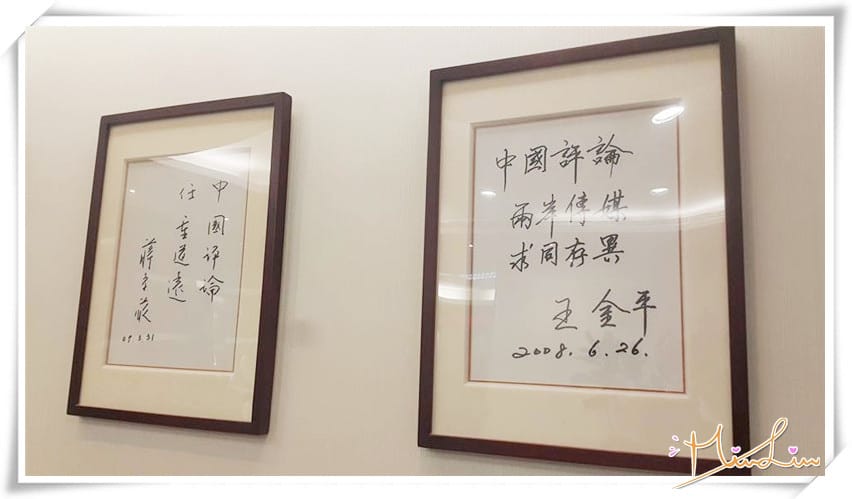 中國評論
任重道遠
蔣孝嚴
09.3.31
中國評論
兩岸傳媒
求同存異
王金平
2008.6.26.